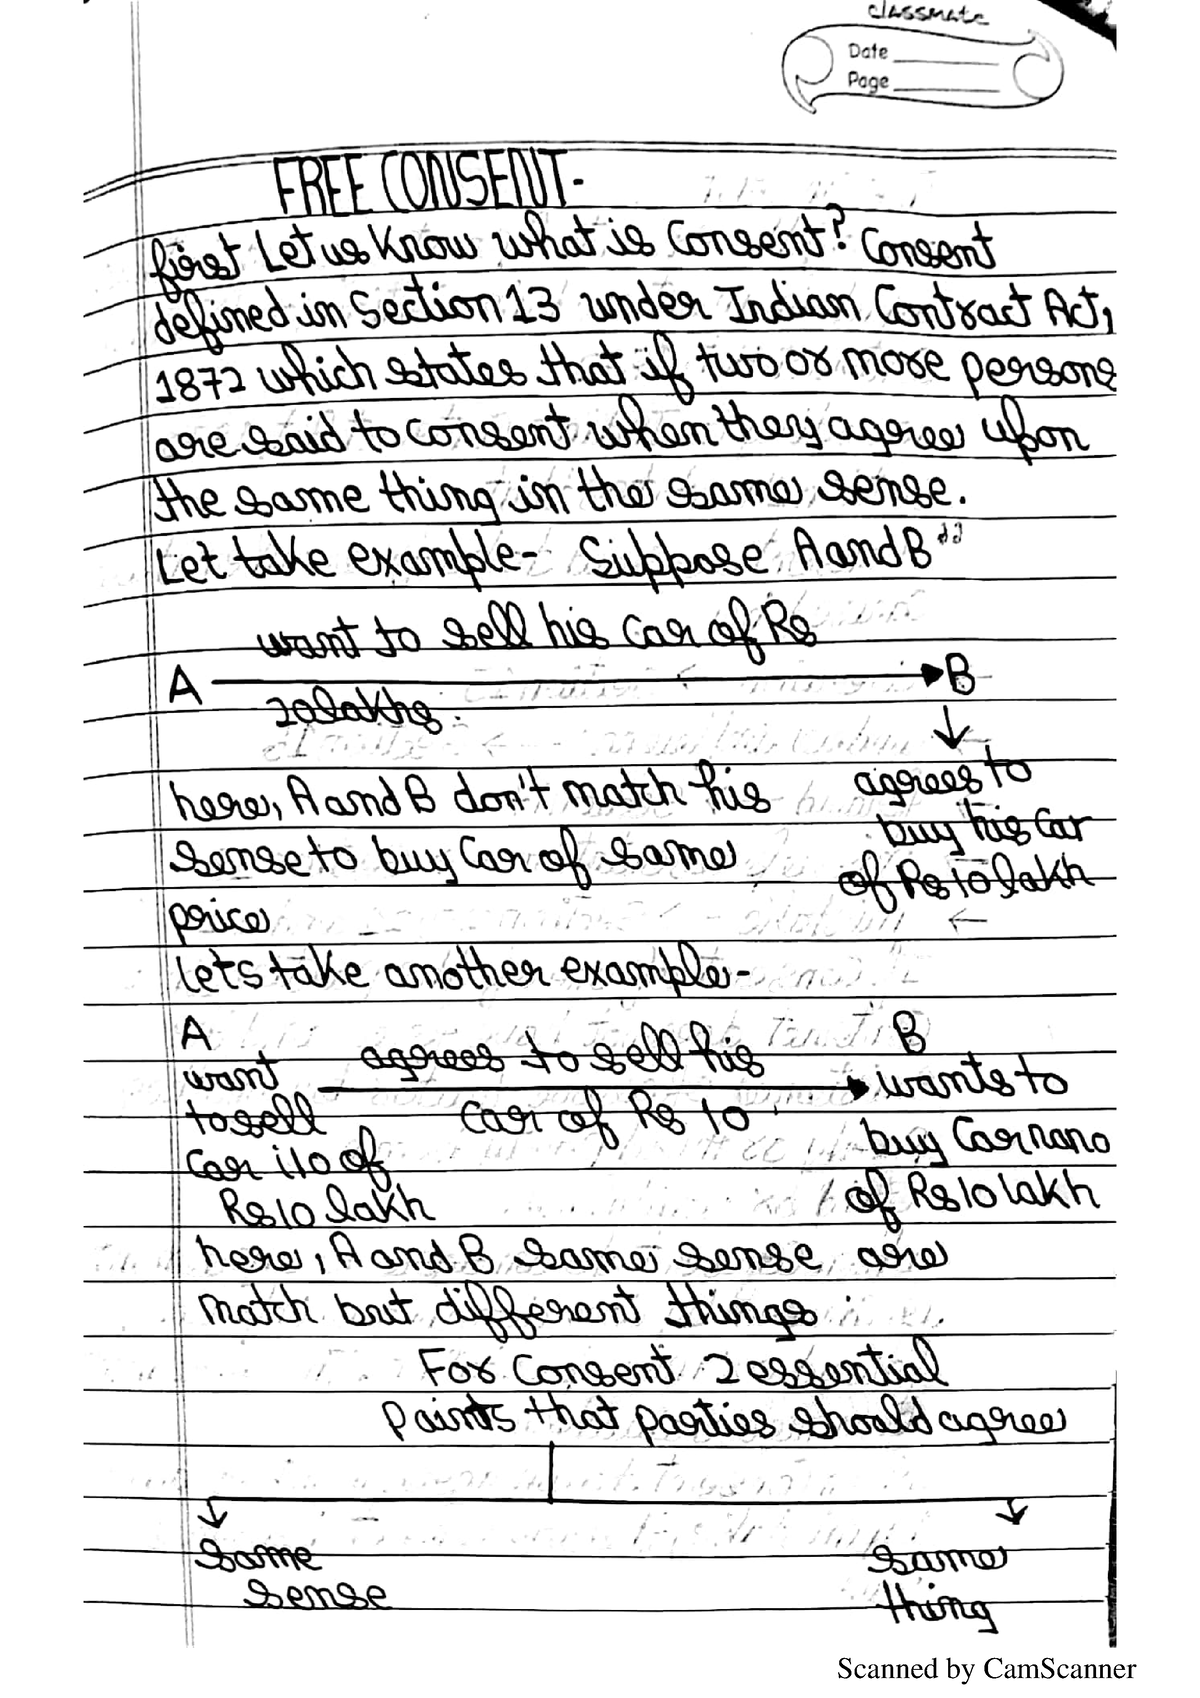 classmate
Date
Page
FREE CONSENT-
first Let us Know what is Consent? Consent
defined in Section 13 under Indian Contract Act,
1872 which states that if two or more persons
are said to consent when they agree upon
the same thing in the same sense.
Let take example- Suppose A and B
want to sell his Car of Rs
A B
20 lakhs.
agrees to
buy his Car
of Rs 10 lakh
here, A and B don't match his
sense to buy Car of same
price
lets take another example-
A B
want
to sell
Car i10 of
Rs 10 lakh
agrees to sell his
Car of Rs 10
wants to
buy Car nano
of Rs 10 lakh
here, A and B same sense are
match but different things
For Consent 2 essential
points that parties should agree
Same
sense
Same
thing
Scanned by CamScanner